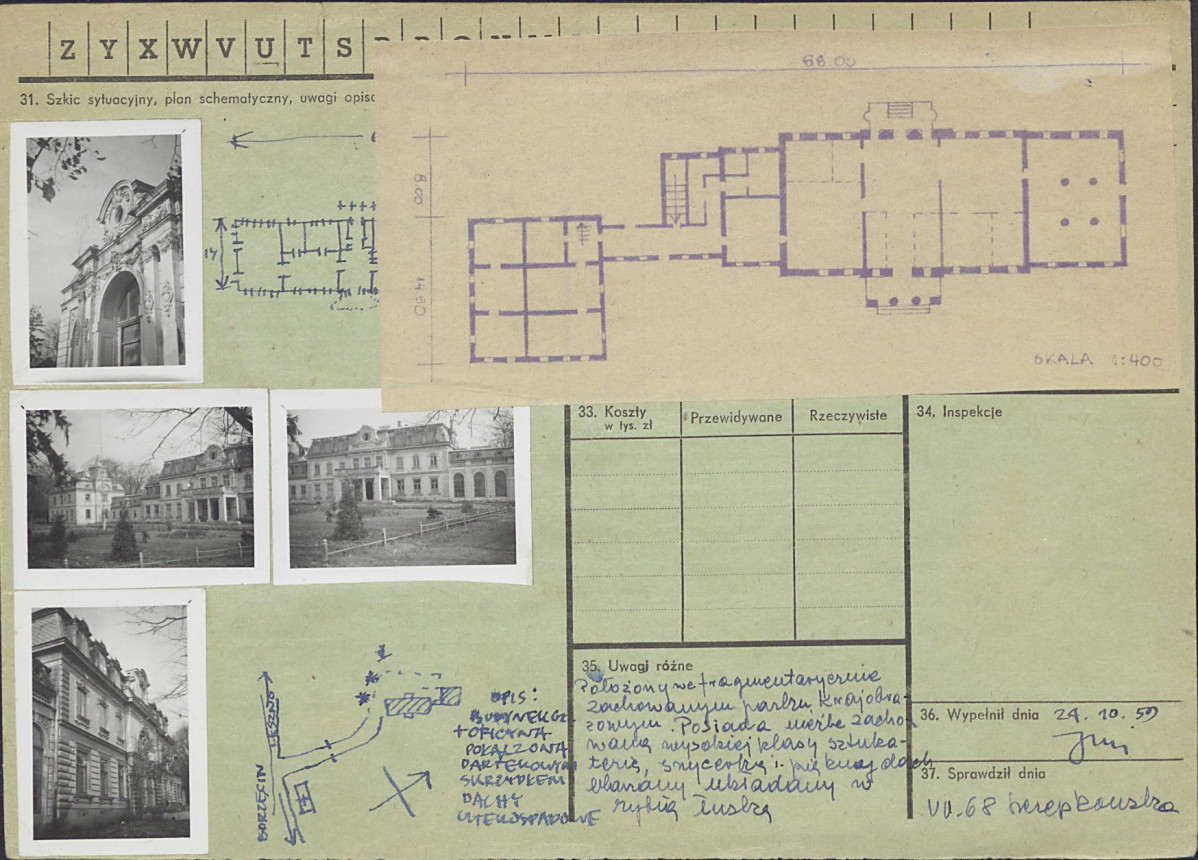 Z Y X W V U T S
31. Szkic sytuacyjny, plan schematyczny, uwagi opiso
68.00
6.00
14.50
14
SKALA 1:400
33. Koszty
w tys. zł
Przewidywane
Rzeczywiste
34. Inspekcje
35. Uwagi różne
Położony we fragmentarycznie
zachowanym parku krajobra-
zowym. Posiada nieźle zacho-
waną wysokiej klasy sztuka-
terię, snycerkę i piękny dach
blaszany układany w
rybią łuskę
36. Wypełnił dnia 24. 10. 59
37. Sprawdził dnia
VII.68
LESZNO
BORZĘCIN
OPIS:
BUDYNEK GŁ.
+ OFICYNA
POŁĄCZONA
PARTEROWYM
SKRZYDŁEM
DACHY
WIELOSPADOWE